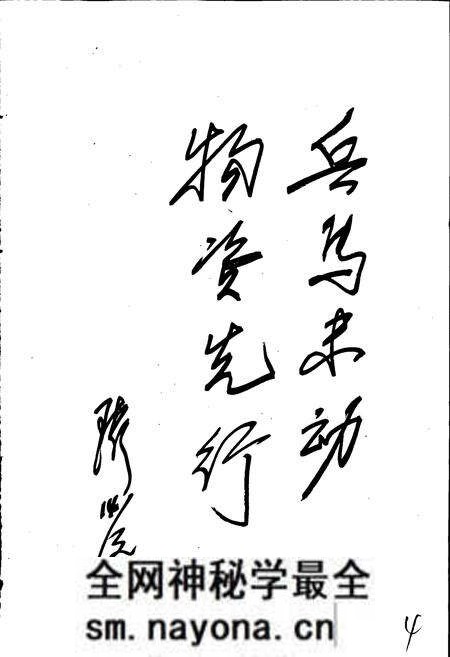 兵马未动
物资先行
全网神秘学最全
sm.nayona.cn
4